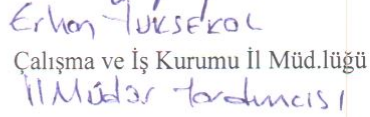 Erhan YÜKSEKOL
Çalışma ve İş Kurumu İl Müd.lüğü
İl Müdür Yardımcısı